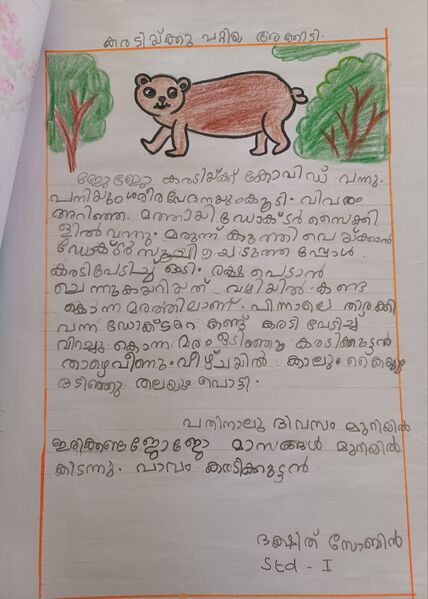 കരടിയ്ക്കു പറ്റിയ അക്കിടി.
ജോജോ കരടിയ്ക്ക് കോവിഡ് വന്നു.
പനിയും ശരീരവേദനയും കൂടി. വിവരം
അറിഞ്ഞ മത്തായി ഡോക്ടർ സൈക്കി
ളിൽ വന്നു. മരുന്ന് കുത്തി വെയ്ക്കാൻ
ഡോക്ടർ സൂചി എടുത്തപ്പോൾ
കരടി പേടിച്ച് ഓടി. രക്ഷപെടാൻ
ചെന്നുകയറിയത് വഴിയിൽ കണ്ട
കൊന്ന മരത്തിലാണ്. പിന്നാലെ തിരക്കി
വന്ന ഡോക്ടറെ കണ്ട് കരടി പേടിച്ചു
വിറച്ചു കൊന്ന മരം ഒടിഞ്ഞു കരടിക്കുട്ടൻ
താഴെവീണു. വീഴ്ചയിൽ കാലും കൈയ്യും
ഒടിഞ്ഞു തലയും പൊട്ടി.
പതിനാലു ദിവസം മുറിയിൽ
ഇരിക്കേണ്ട ജോജോ മാസങ്ങൾ മുറിയിൽ
കിടന്നു. പാവം കരടിക്കുട്ടൻ
ദക്ഷിത് സോബിൻ
Std - I